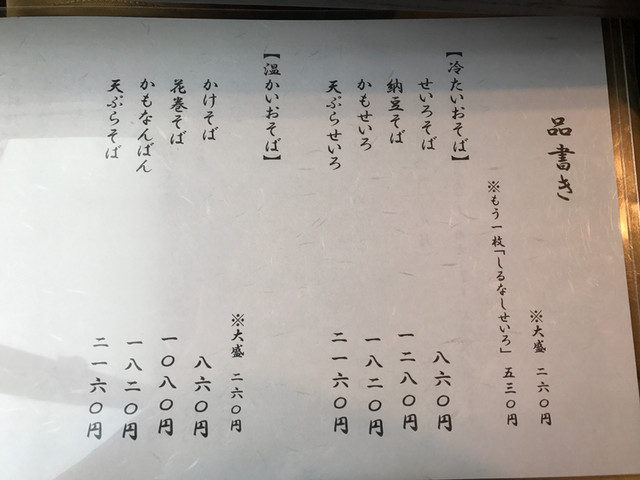 品書き
※大盛 二六〇円
※もう一枚「しるなしせいろ」 五三〇円
【冷たいおそば】
せいろそば 八六〇円
納豆そば 一二八〇円
かもせいろ 一八二〇円
天ぷらせいろ 二一六〇円
【温かいおそば】
※大盛 二六〇円
かけそば 八六〇円
花巻そば 一〇八〇円
かもなんばん 一八二〇円
天ぷらそば 二一六〇円